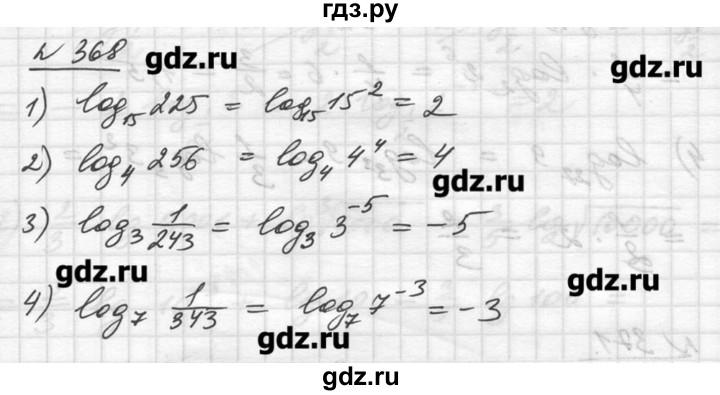 гдз.ру
№ 368
gdz.ru
gdz.ru
1) log₁₅ 225 = log₁₅ 15² = 2
2) log₄ 256 = log₄ 4⁴ = 4
gdz.ru
3) log₃ 1/243 = log₃ 3⁻⁵ = -5
gdz.ru
gdz.ru
4) log₇ 1/343 = log₇ 7⁻³ = -3
gdz.ru
gdz.ru